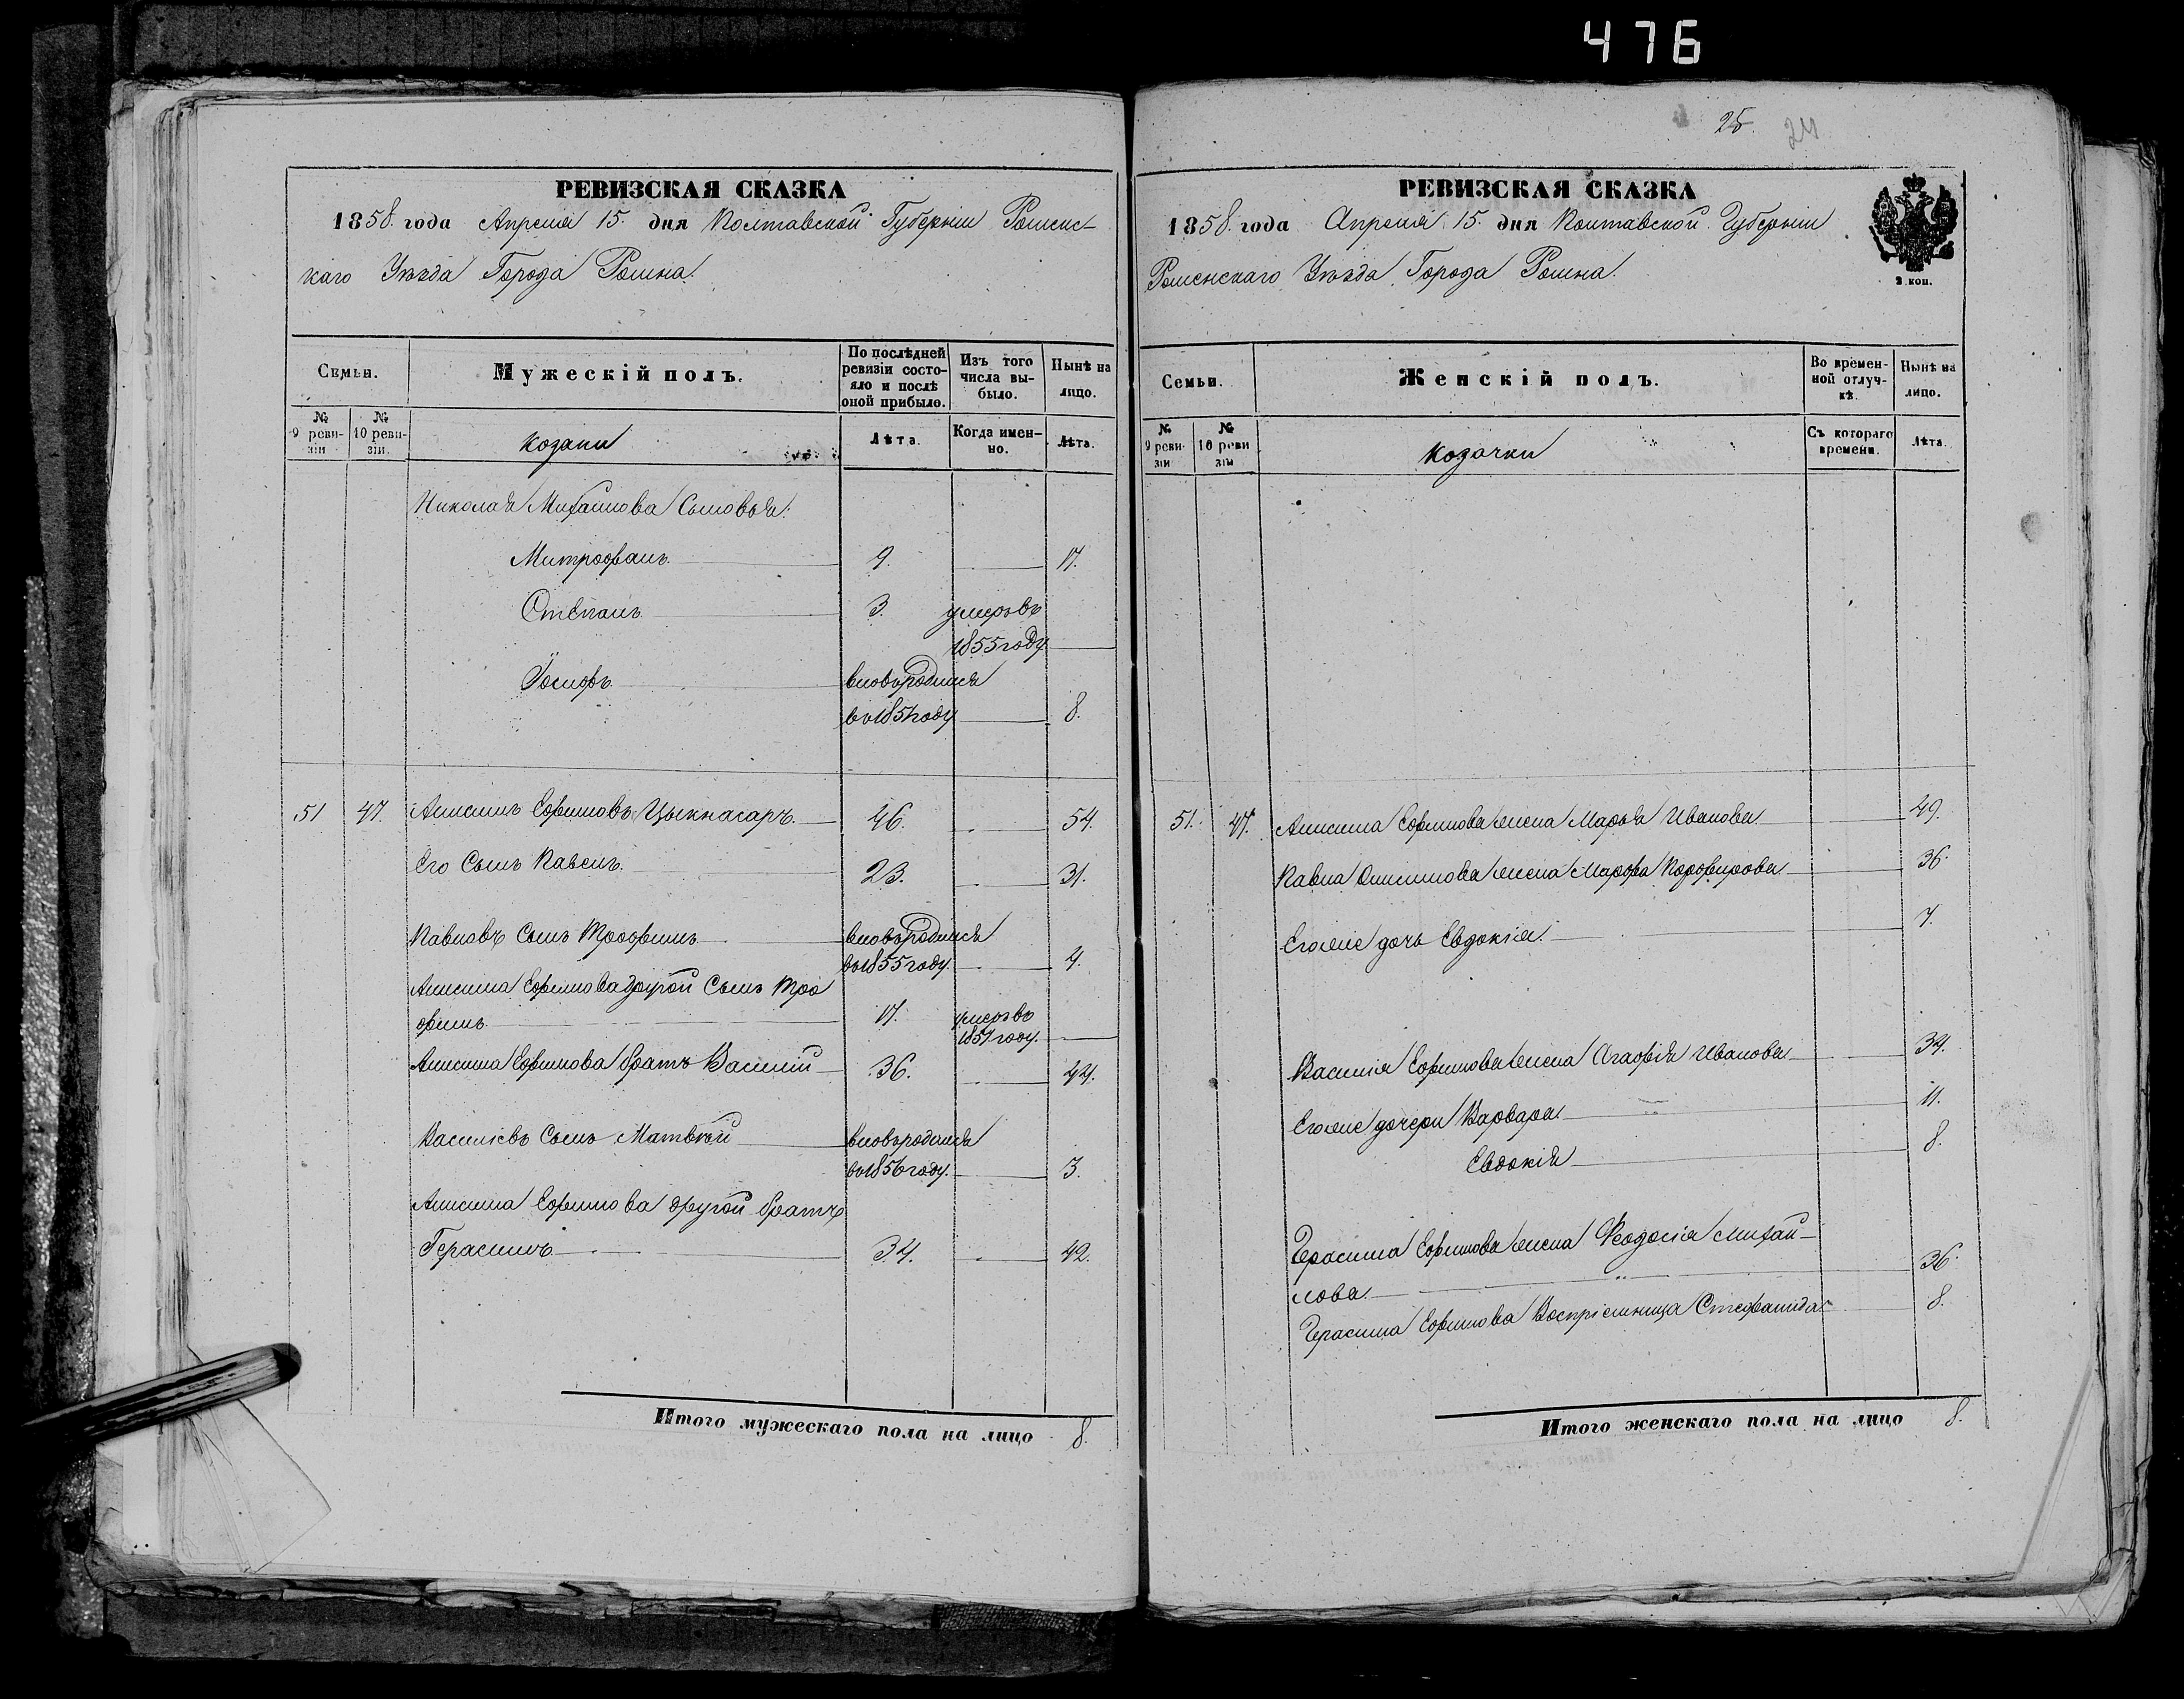 476
25.
24
РЕВИЗСКАЯ СКАЗКА
1858. года Апреля 15. дня Полтавской Губерніи Роменс-
каго Уѣзда Города Ромна.
Семьи.
Мужескій полъ.
По послѣдней ревизіи состояло и послѣ оной прибыло.
Изъ того числа выбыло.
Нынѣ на лицо.
№ 9 ревизіи
№ 10 ревизіи.
козаки
Лѣта.
Когда именно.
Лѣта.
Николая Михайлова Сыновья:
Митрофанъ 9. 17.
Степанъ 3. умеръ въ
1855 году
Іосифъ вновь родился
въ 1851 году 8.
51 47. Анисимъ Ефимовъ 46. 54.
Его Сынъ Павелъ. 23. 31.
Павловъ Сынъ Трофимъ вновь родился
въ 1855 году. 4.
Анисима Ефимова другой Сынъ Тро
фимъ 17. умеръ въ
1851 году.
Анисима Ефимова братъ Василій 36. 44.
Василіевъ Сынъ Матвѣй вновь родился
въ 1856 году. 3.
Анисима Ефимова другой братъ
Герасимъ 34. 42.
Итого мужескаго пола на лицо 8.
РЕВИЗСКАЯ СКАЗКА
1858. года Апреля 15. дня Полтавской Губерніи
Роменскаго Уѣзда Города Ромна.
2 коп.
Семьи.
Женскій полъ.
Во временной отлучкѣ.
Нынѣ на лицо.
№ 9 ревизіи
№ 10 ревизіи
козачки
Съ котораго времени.
Лѣта.
51. 47. Анисима Ефимова жена Марья Иванова 49.
Павла Анисимова жена Марфа Порфирова 36.
Его же дочь Евдокія. 7.
Василія Ефимова жена Агафія Иванова 34.
Его же дочери Варвара 11.
Евдокія 8.
Герасима Ефимова жена Феодосія Михай-
лова 36.
Герасима Ефимова Воспріемница Стефанида 8.
Итого женскаго пола на лицо 8.